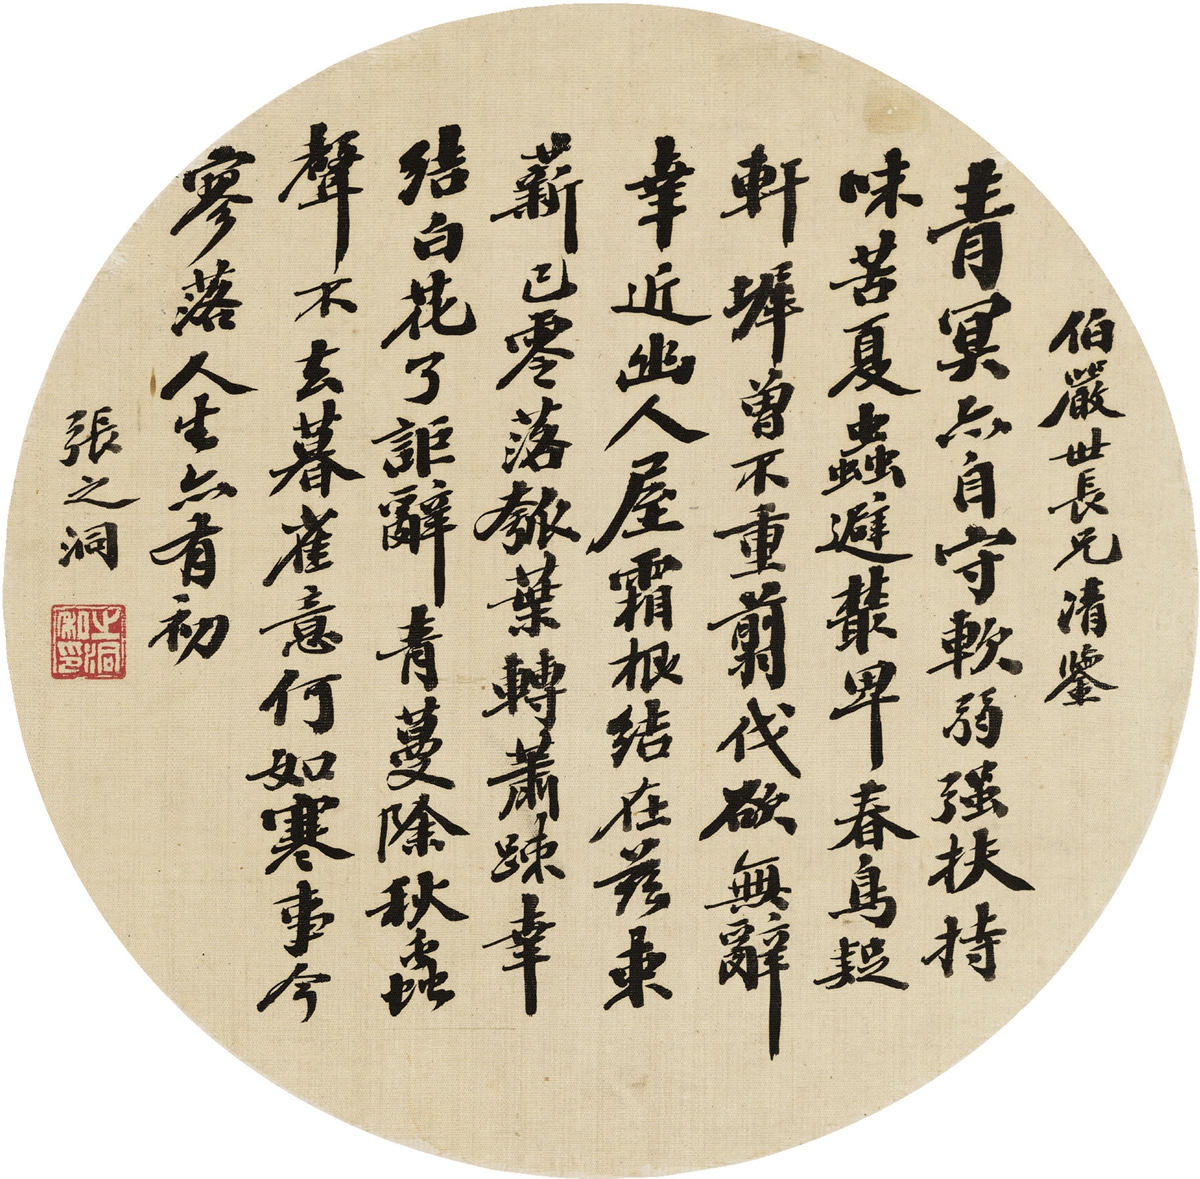 伯嚴世長兄清鑒
青冥亦自守軟弱强扶持
味苦夏蟲避叢卑春鳥疑
軒墀曾不重翦伐欲無辭
幸近幽人屋霜根結在茲束
薪已零落瓠葉轉蕭踈幸
結白花了詎辭青蔓除秋蟲
聲不去暮雀意何如寒事今
寥落人生亦有初
張之洞
之洞私印